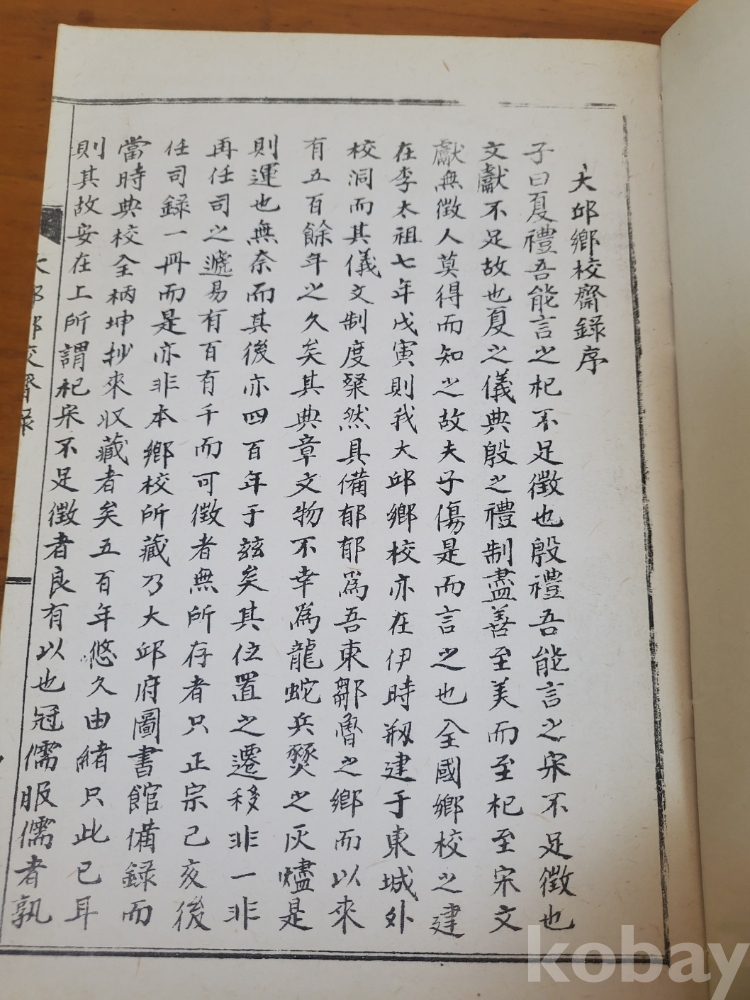 大邱鄉校齋錄序
子曰夏禮吾能言之杞不足徵也殷禮吾能言之宋不足徵也
文獻不足故也夏之儀典殷之禮制盡善至美而至杞至宋文
獻無徵人莫得而知之故夫子傷是而言之也全國鄉校之建
在李太祖七年戊寅則我大邱鄉校亦在伊時刱建于東城外
校洞而其儀文制度粲然具備郁郁爲吾東鄒魯之鄉而以來
有五百餘年之久矣其典章文物不幸爲龍蛇兵燹之灰燼是
則運也無奈而其後亦四百年于玆矣其位置之遷移非一非
再任司之遞易有百有千而可徵者無所存者只正宗己亥後
任司錄一冊而是亦非本鄉校所藏乃大邱府圖書館備錄而
當時典校全柄坤抄來收藏者矣五百年悠久由緒只此已耳
則其故安在上所謂杞宋不足徵者良有以也冠儒服儒者孰
大邱鄉校齋錄
kobay